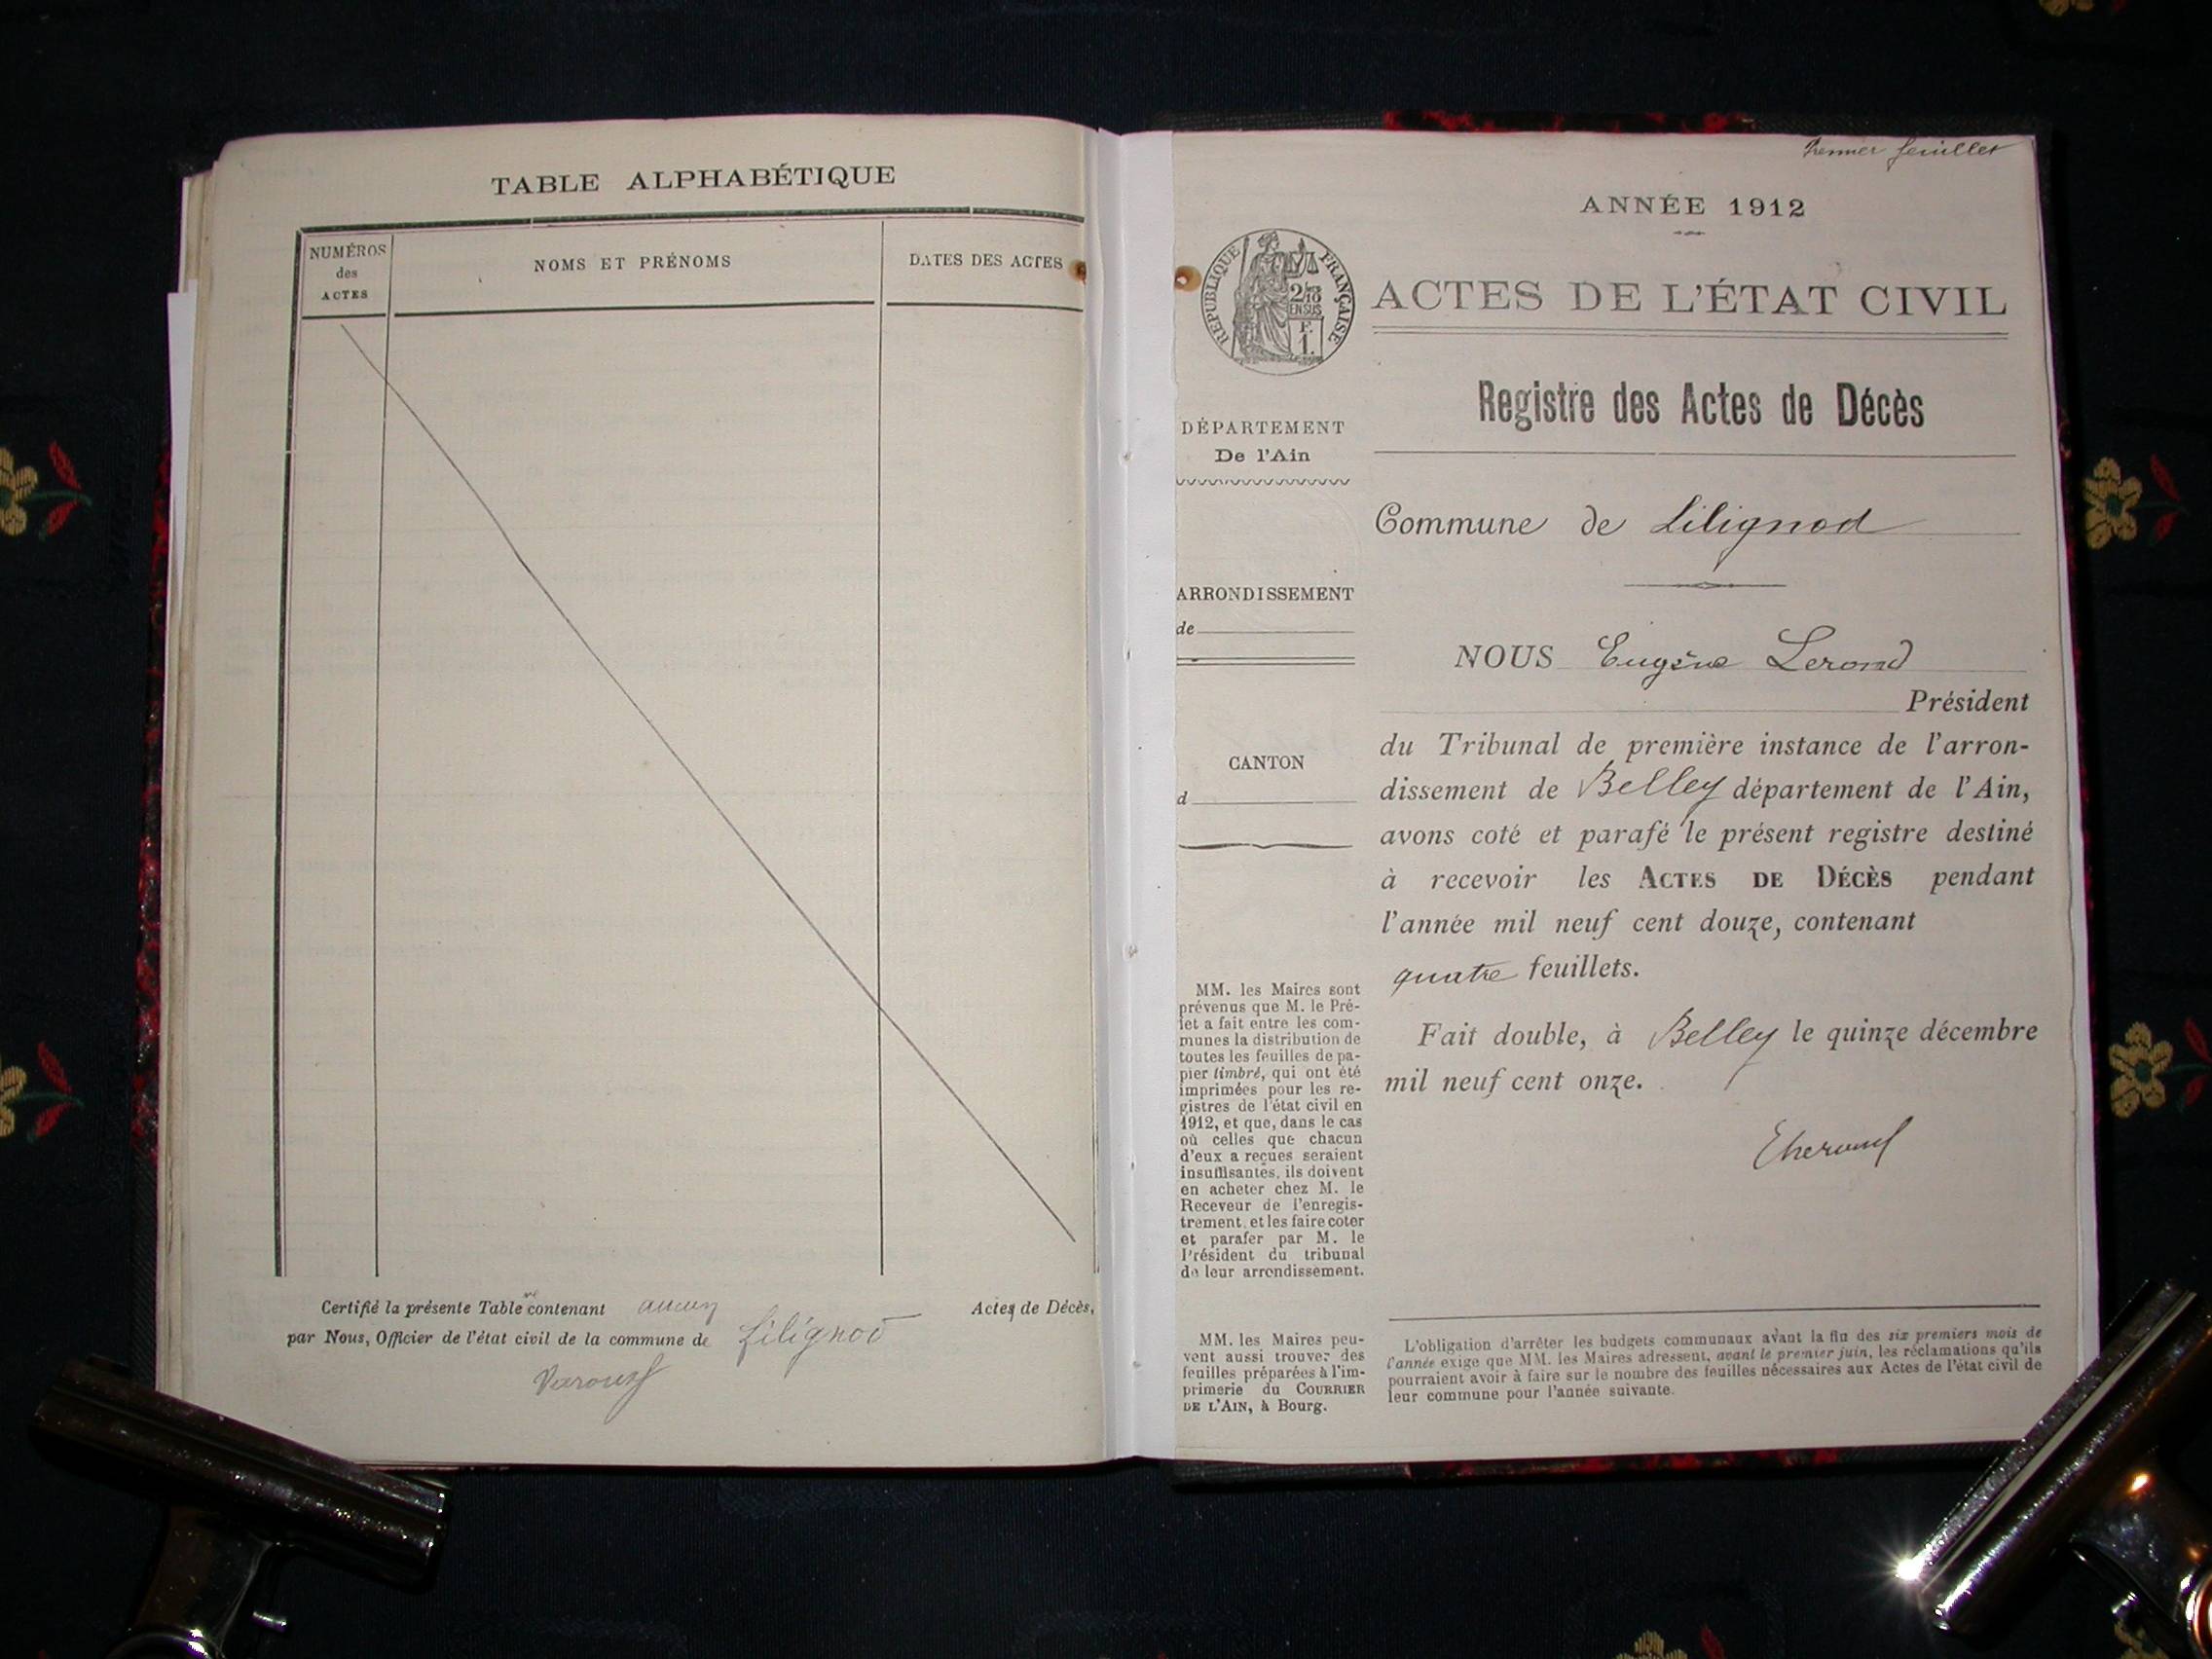 TABLE ALPHABÉTIQUE
NUMÉROS
des
ACTES
NOMS ET PRÉNOMS
DATES DES ACTES
Certifié la présente Table contenant aucun Actes de Décès,
par Nous, Officier de l'état civil de la commune de Lilignod
Premier feuillet
ANNÉE 1912
RÉPUBLIQUE FRANÇAISE
2/10
EN SUS
F.
1.
ACTES DE L'ÉTAT CIVIL
Registre des Actes de Décès
DÉPARTEMENT
De l'Ain
Commune de Lilignod
ARRONDISSEMENT
de
NOUS Eugène Lerond
Président
du Tribunal de première instance de l'arron-
dissement de Belley département de l'Ain,
avons coté et parafé le présent registre destiné
à recevoir les ACTES DE DÉCÈS pendant
l'année mil neuf cent douze, contenant
quatre feuillets.
Fait double, à Belley le quinze décembre
mil neuf cent onze.
CANTON
d
MM. les Maires sont
prévenus que M. le Pré-
fet a fait entre les com-
munes la distribution de
toutes les feuilles de pa-
pier timbré, qui ont été
imprimées pour les re-
gistres de l'état civil en
1912, et que, dans le cas
où celles que chacun
d'eux a reçues seraient
insuffisantes, ils doivent
en acheter chez M. le
Receveur de l'enregis-
trement, et les faire coter
et parafer par M. le
Président du tribunal
de leur arrondissement.
MM. les Maires peu-
vent aussi trouver des
feuilles préparées à l'im-
primerie du COURRIER
DE L'AIN, à Bourg.
L'obligation d'arrêter les budgets communaux avant la fin des six premiers mois de
l'année exige que MM. les Maires adressent, avant le premier juin, les réclamations qu'ils
pourraient avoir à faire sur le nombre des feuilles nécessaires aux Actes de l'état civil de
leur commune pour l'année suivante.